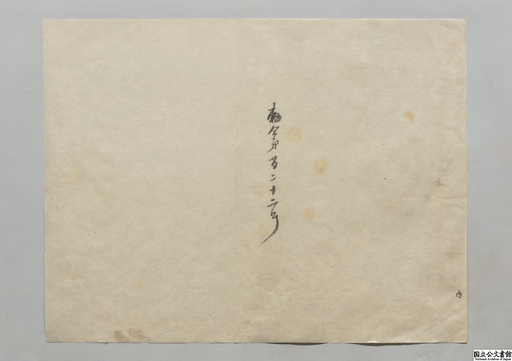 勅令第百二十二号
内
国立公文書館
National Archives of Japan